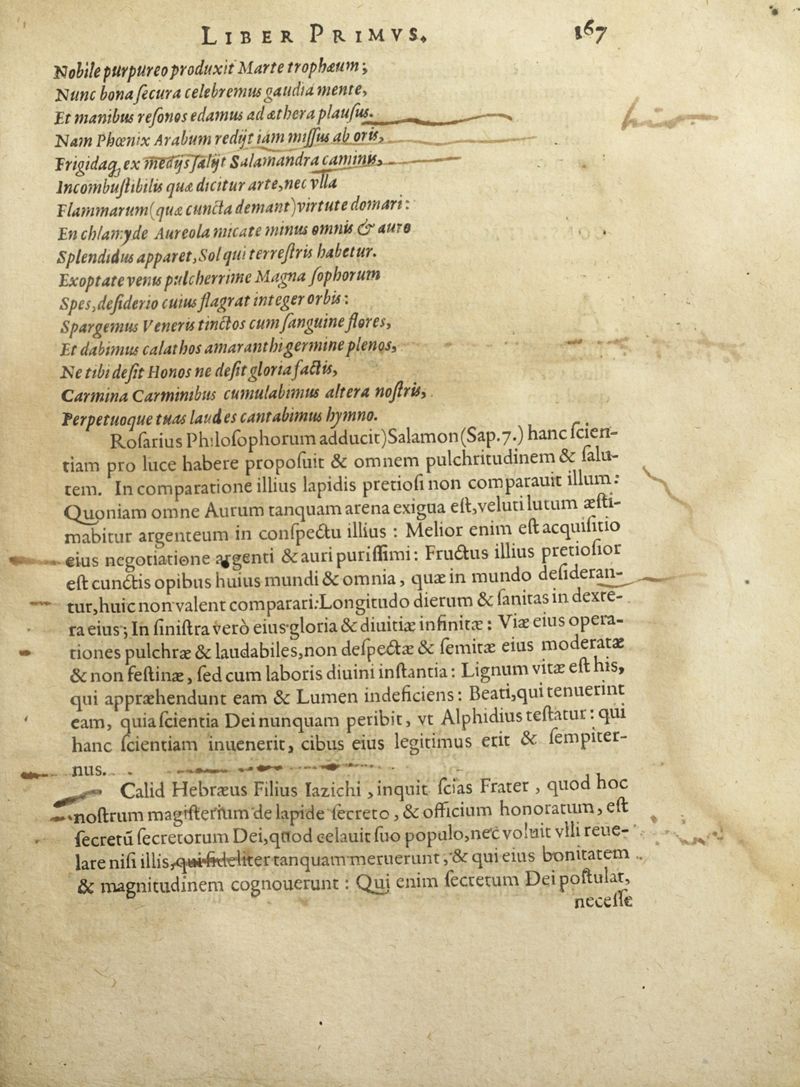 LIBER PRIMVS. 167
Nobile purpureo produxit Marte trophæum;
Nunc bona secura celebremus gaudia mente,
Et manibus resonos edamus ad æthera plausus.
Nam Phœnix Arabum redijt iam missus ab oris,
Frigidaq; ex medijs salijt Salamandra caminis,
Incombustibilis quæ dicitur arte, nec vlla
Flammarum (quæ cuncta demant) virtute domari:
En chlamyde Aureola micate minus omnis & auro
Splendidus apparet, Sol qui terrestris habetur.
Exoptate venis pulcherrime Magna sophorum
Spes, desiderio cuius flagrat integer orbis:
Spargemus Veneris tinctos cum sanguine flores,
Et dabimus calathos amaranthi germine plenos,
Ne tibi desit Honos ne desit gloria factis,
Carmina Carminibus cumulabimus altera nostris,
Perpetuoque tuas laudes cantabimus hymno.
Rosarius Philosophorum adducit) Salamon (Sap. 7.) hanc scien-
tiam pro luce habere proposuit & omnem pulchritudinem & salu-
tem. In comparatione illius lapidis pretiosi non comparauit illum:
Quoniam omne Aurum tanquam arena exigua est, veluti lutum æsti-
mabitur argenteum in conspectu illius: Melior enim est acquisitio
eius negotiatione argenti & auri purissimi: Fructus illius pretiosior
est cunctis opibus huius mundi & omnia, quæ in mundo desideran-
tur, huic non valent comparari: Longitudo dierum & sanitas in dexte-
ra eius; In sinistra verò eius gloria & diuitiæ infinitæ: Viæ eius opera-
tiones pulchræ & laudabiles, non despectæ & semitæ eius moderatæ
& non festinæ, sed cum laboris diuini instantia: Lignum vitæ est his,
qui appræhendunt eam & Lumen indeficiens: Beati, qui tenuerint
eam, quia scientia Dei nunquam peribit, vt Alphidius testatur: qui
hanc scientiam inuenerit, cibus eius legitimus erit & sempiter-
nus.
Calid Hebræus Filius Iazichi, inquit scias Frater, quod hoc
nostrum magisterium de lapide secreto, & officium honoratum, est
secretū secretorum Dei, quod celauit suo populo, nec voluit vlli reue-
lare nisi illis, qui fideliter tanquam meruerunt, & qui eius bonitatem
& magnitudinem cognouerunt: Qui enim secretum Dei postulat,
necesse